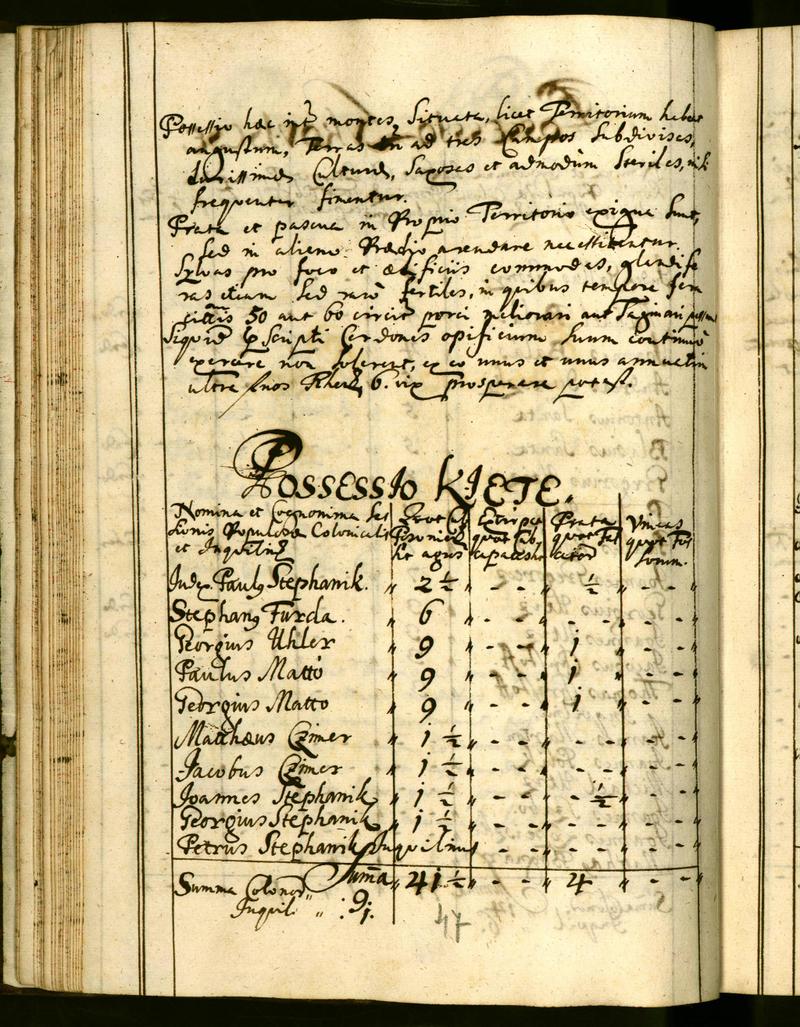 Possessio hæc inter montes, Situata, licet Territorium habeat
angustum, Terras in ad tres Campos Subdivisas,
durissimæ Culturæ, Saxosas et admodum Steriles,
frequenter fimentur.
Prata et pascua in Proprio Territorio exigua sunt,
sed in alieno Prædio arendare necessitantur.
Sylvas pro foco et ædificiis commodas, glandife
ras etiam sed raro fertiles, in quibus tempore fer
50 aut 60 circit porci meliorari aut Saginari possunt
Siquidem Scripti Cerdones opificium suum continuo
exercere non solerent, ex eo unus et unus annuatim
ultra suos Rhen 6. vix prosperare potest.
Possessio Kiete.
Nomina et Cognomina
Populosæ Colonicalis
et Inquilin
Quot
agros
quot
capaces
Prata
quot
Vineas
quot
Judex Paulus Stephanik. " 2 1/2 " - - " 1/2 " - - "
Stephanus Furda. " 6 " - - " - - " - - "
Georgius Uhler " 9 " - - " 1 " - - "
Paulus Matto " 9 " - - " 1 " - - "
Georgius Matto " 9 " - - " 1 " - - "
Matthæus Czimer " 1 1/2 " - - " - - " - - "
Jacobus Czimer " 1 1/2 " - - " - - " - - "
Joannes Stephanik " 1 1/2 " - - " - 1/2 " - - "
Georgius Stephanik " 1 1/2 " - - " - - " - - "
Petrus Stephanik Inquilinus - - " - - " - - "
Suma " 41 1/2 " - - " 4 " - - "
Summa Colonor " : 9.
Inquil. " : 1.
47